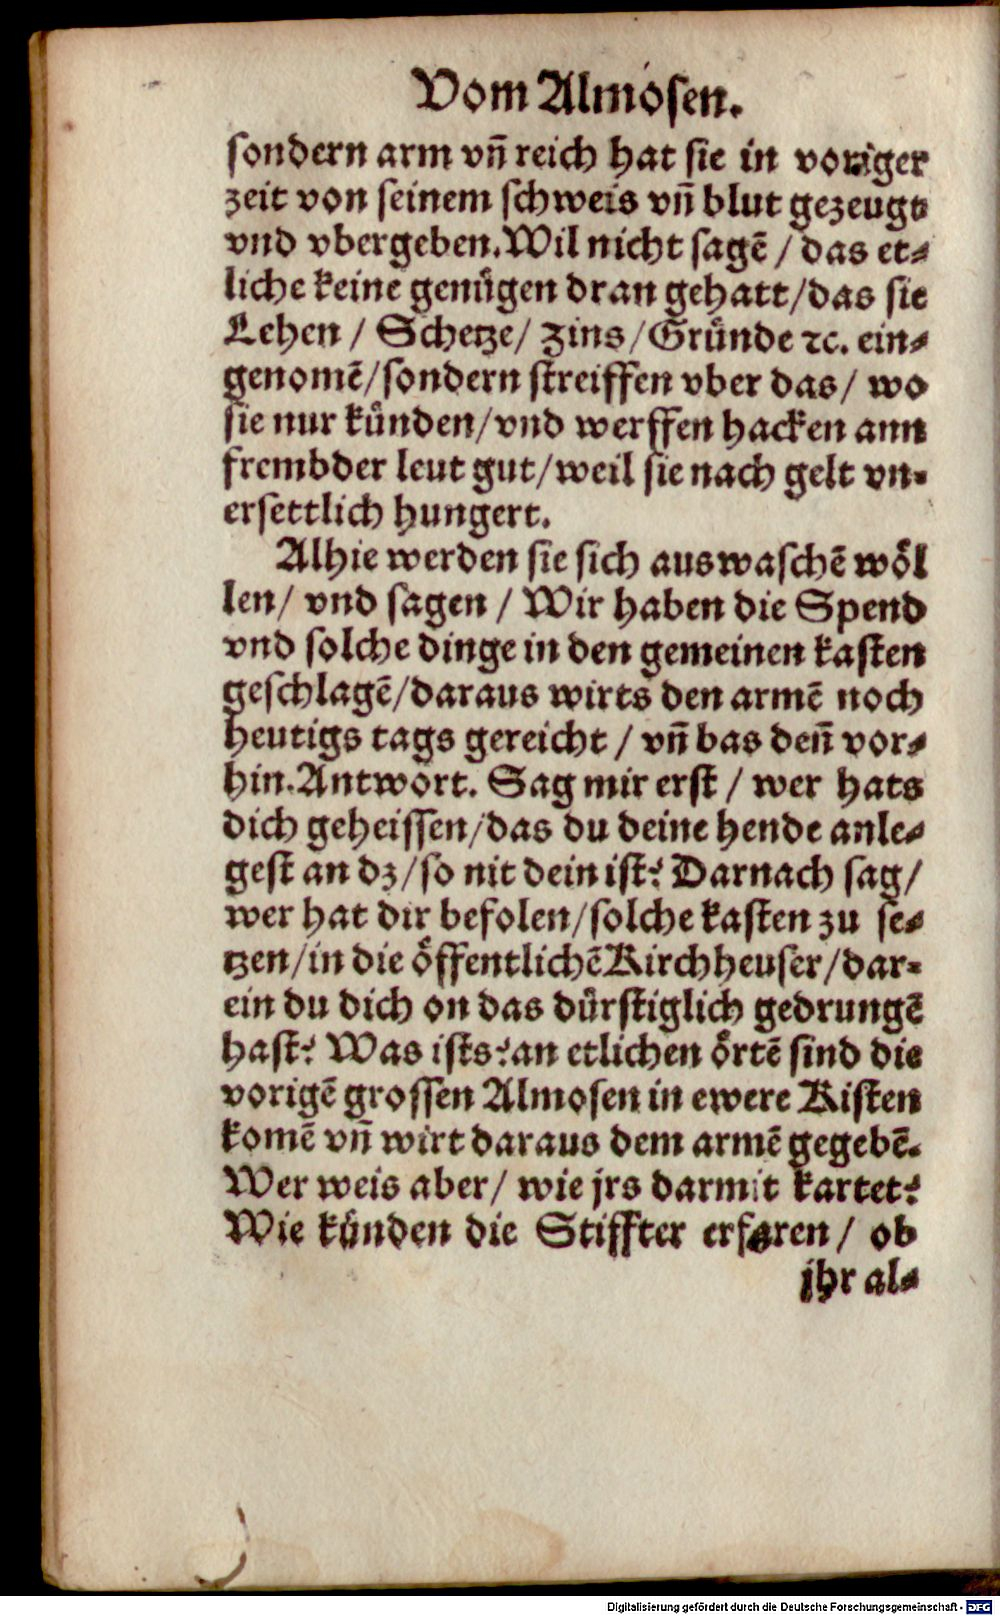 Vom Almosen.
sondern arm vñ reich hat sie in voriger
zeit von seinem schweis vñ blut gezeugt
vnd vbergeben. Wil nicht sagẽ / das et⸗
liche keine genuͤgen dran gehatt / das sie
Lehen / Schetze / Zins / Gruͤnde ꝛc. ein⸗
genomẽ / sondern streiffen vber das / wo
sie nur kuͤnden / vnd werffen hacken ann
frembder leut gut / weil sie nach gelt vn⸗
ersettlich hungert.
Alhie werden sie sich auswaschẽ woͤl
len / vnd sagen / Wir haben die Spend
vnd solche dinge in den gemeinen kasten
geschlagẽ / daraus wirts den armẽ noch
heutigs tags gereicht / vñ bas deñ vor⸗
hin. Antwort. Sag mir erst / wer hats
dich geheissen / das du deine hende anle⸗
gest an dz / so nit dein ist? Darnach sag /
wer hat dir befolen / solche kasten zu se⸗
tzen / in die oͤffentlichẽ Kirchheuser / dar⸗
ein du dich on das duͤrstiglich gedrungẽ
hast? Was ists? an etlichen oͤrtẽ sind die
vorigẽ grossen Almosen in ewere Kisten
komẽ vñ wirt daraus dem armẽ gegebẽ.
Wer weis aber / wie jrs darmit kartet?
Wie kuͤnden die Stiffter erfaren / ob
jhr al⸗
Digitalisierung gefördert durch die Deutsche Forschungsgemeinschaft - DFG